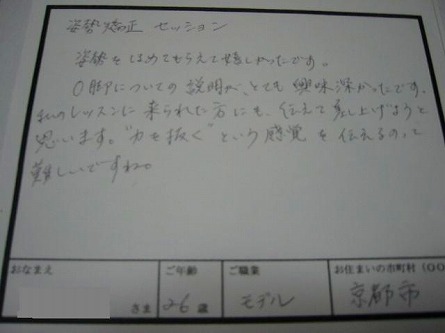 姿勢矯正 セッション
姿勢をほめてもらえて嬉しかったです。
O脚についての説明が、とても興味深かったです。
私のレッスンに来られた方にも、伝えて差し上げようと
思います。"力を抜く"という感覚を伝えるのって
難しいですね。
おなまえ ご年齢 ご職業 お住まいの市町村（〇〇
さま 26歳 モデル 京都市